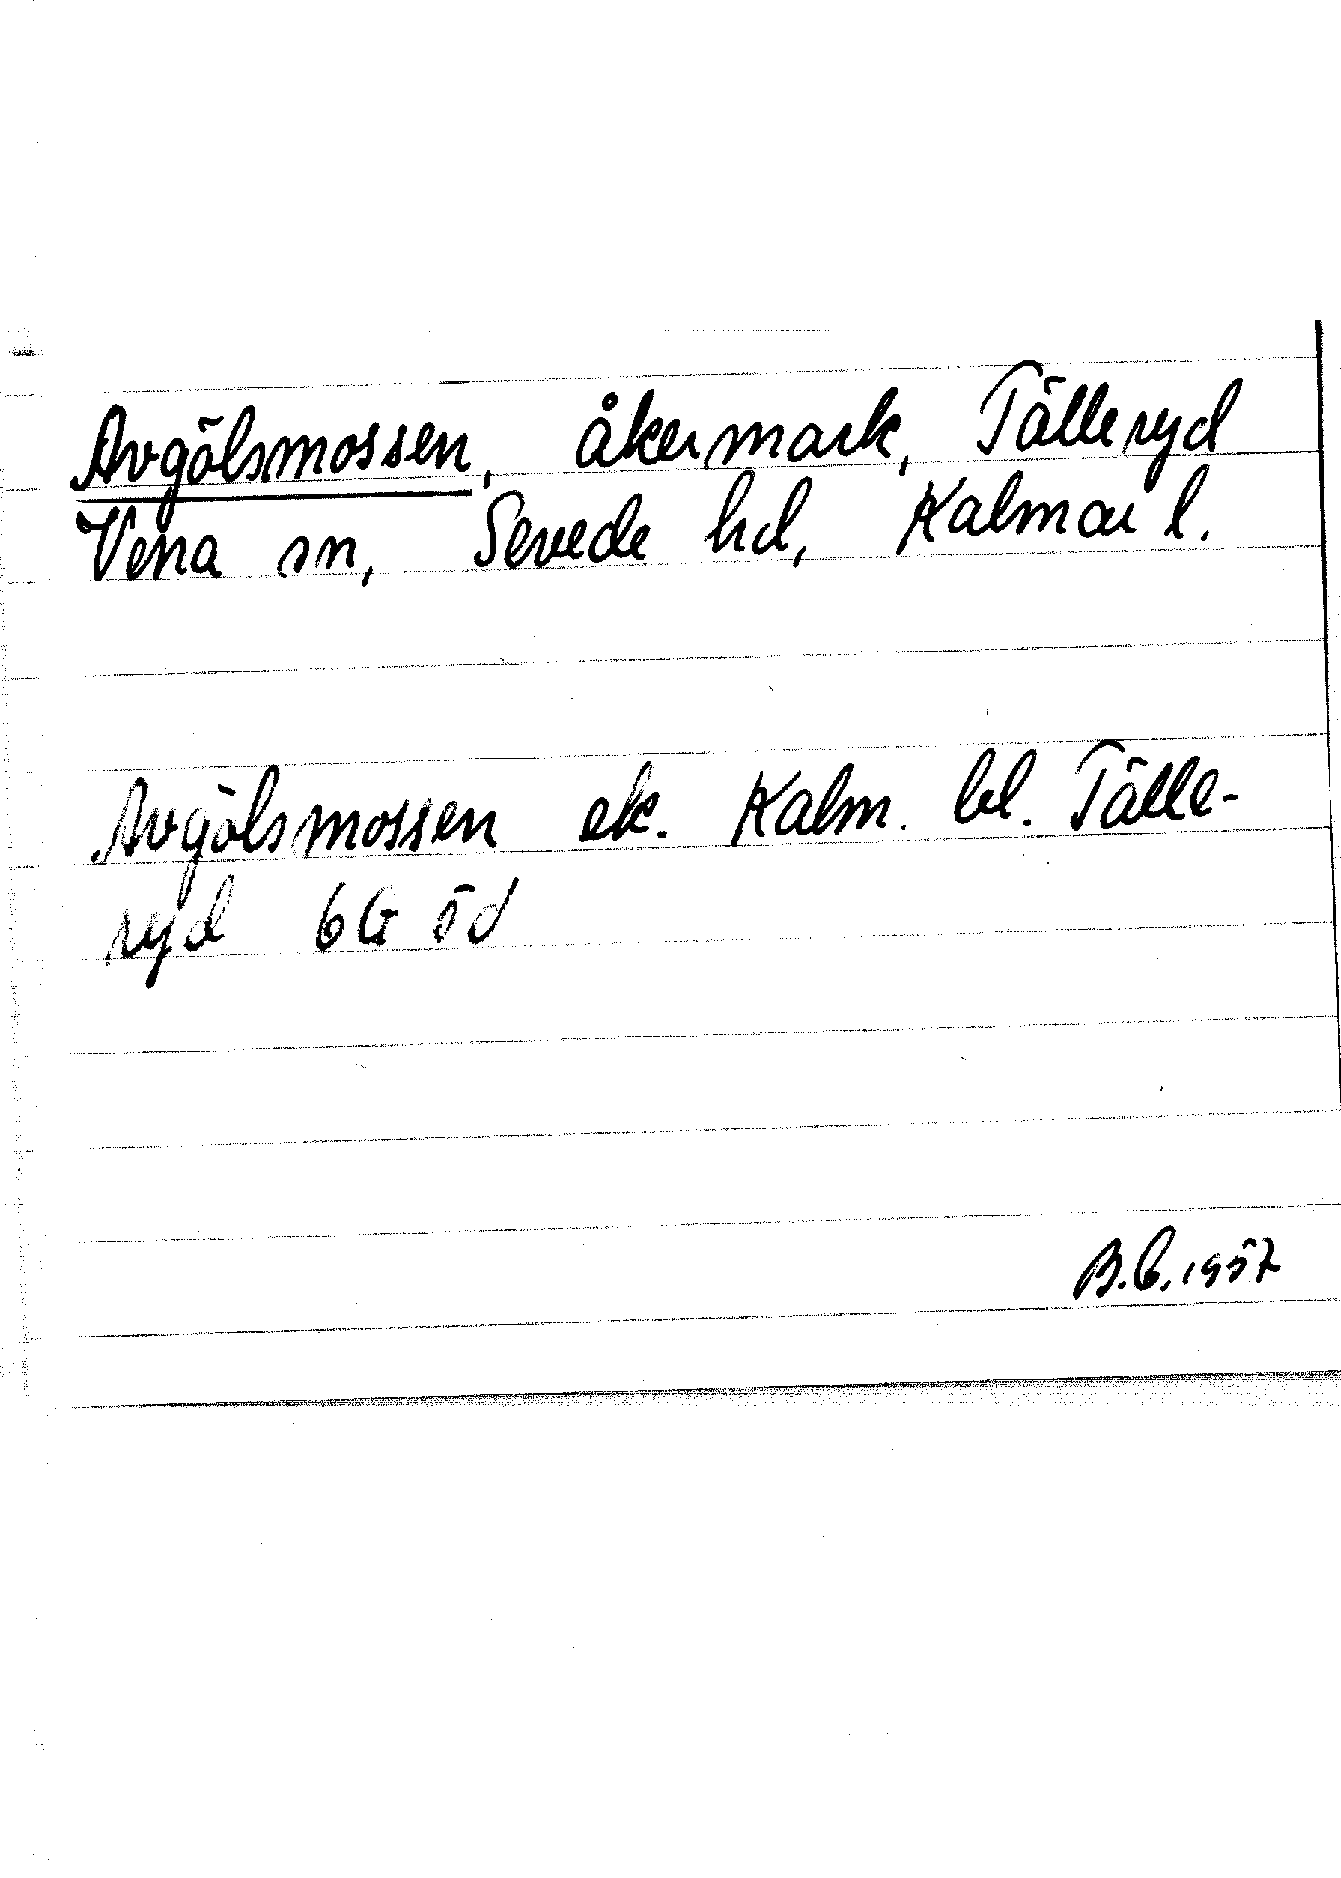 Avgölsmossen, åkermark, Tälleryd
Vena sn, Sevede hd, Kalmar l.
Avgölsmossen ek. Kalm. bl. Tälle-
ryd 6G 5d
B.G. 1957